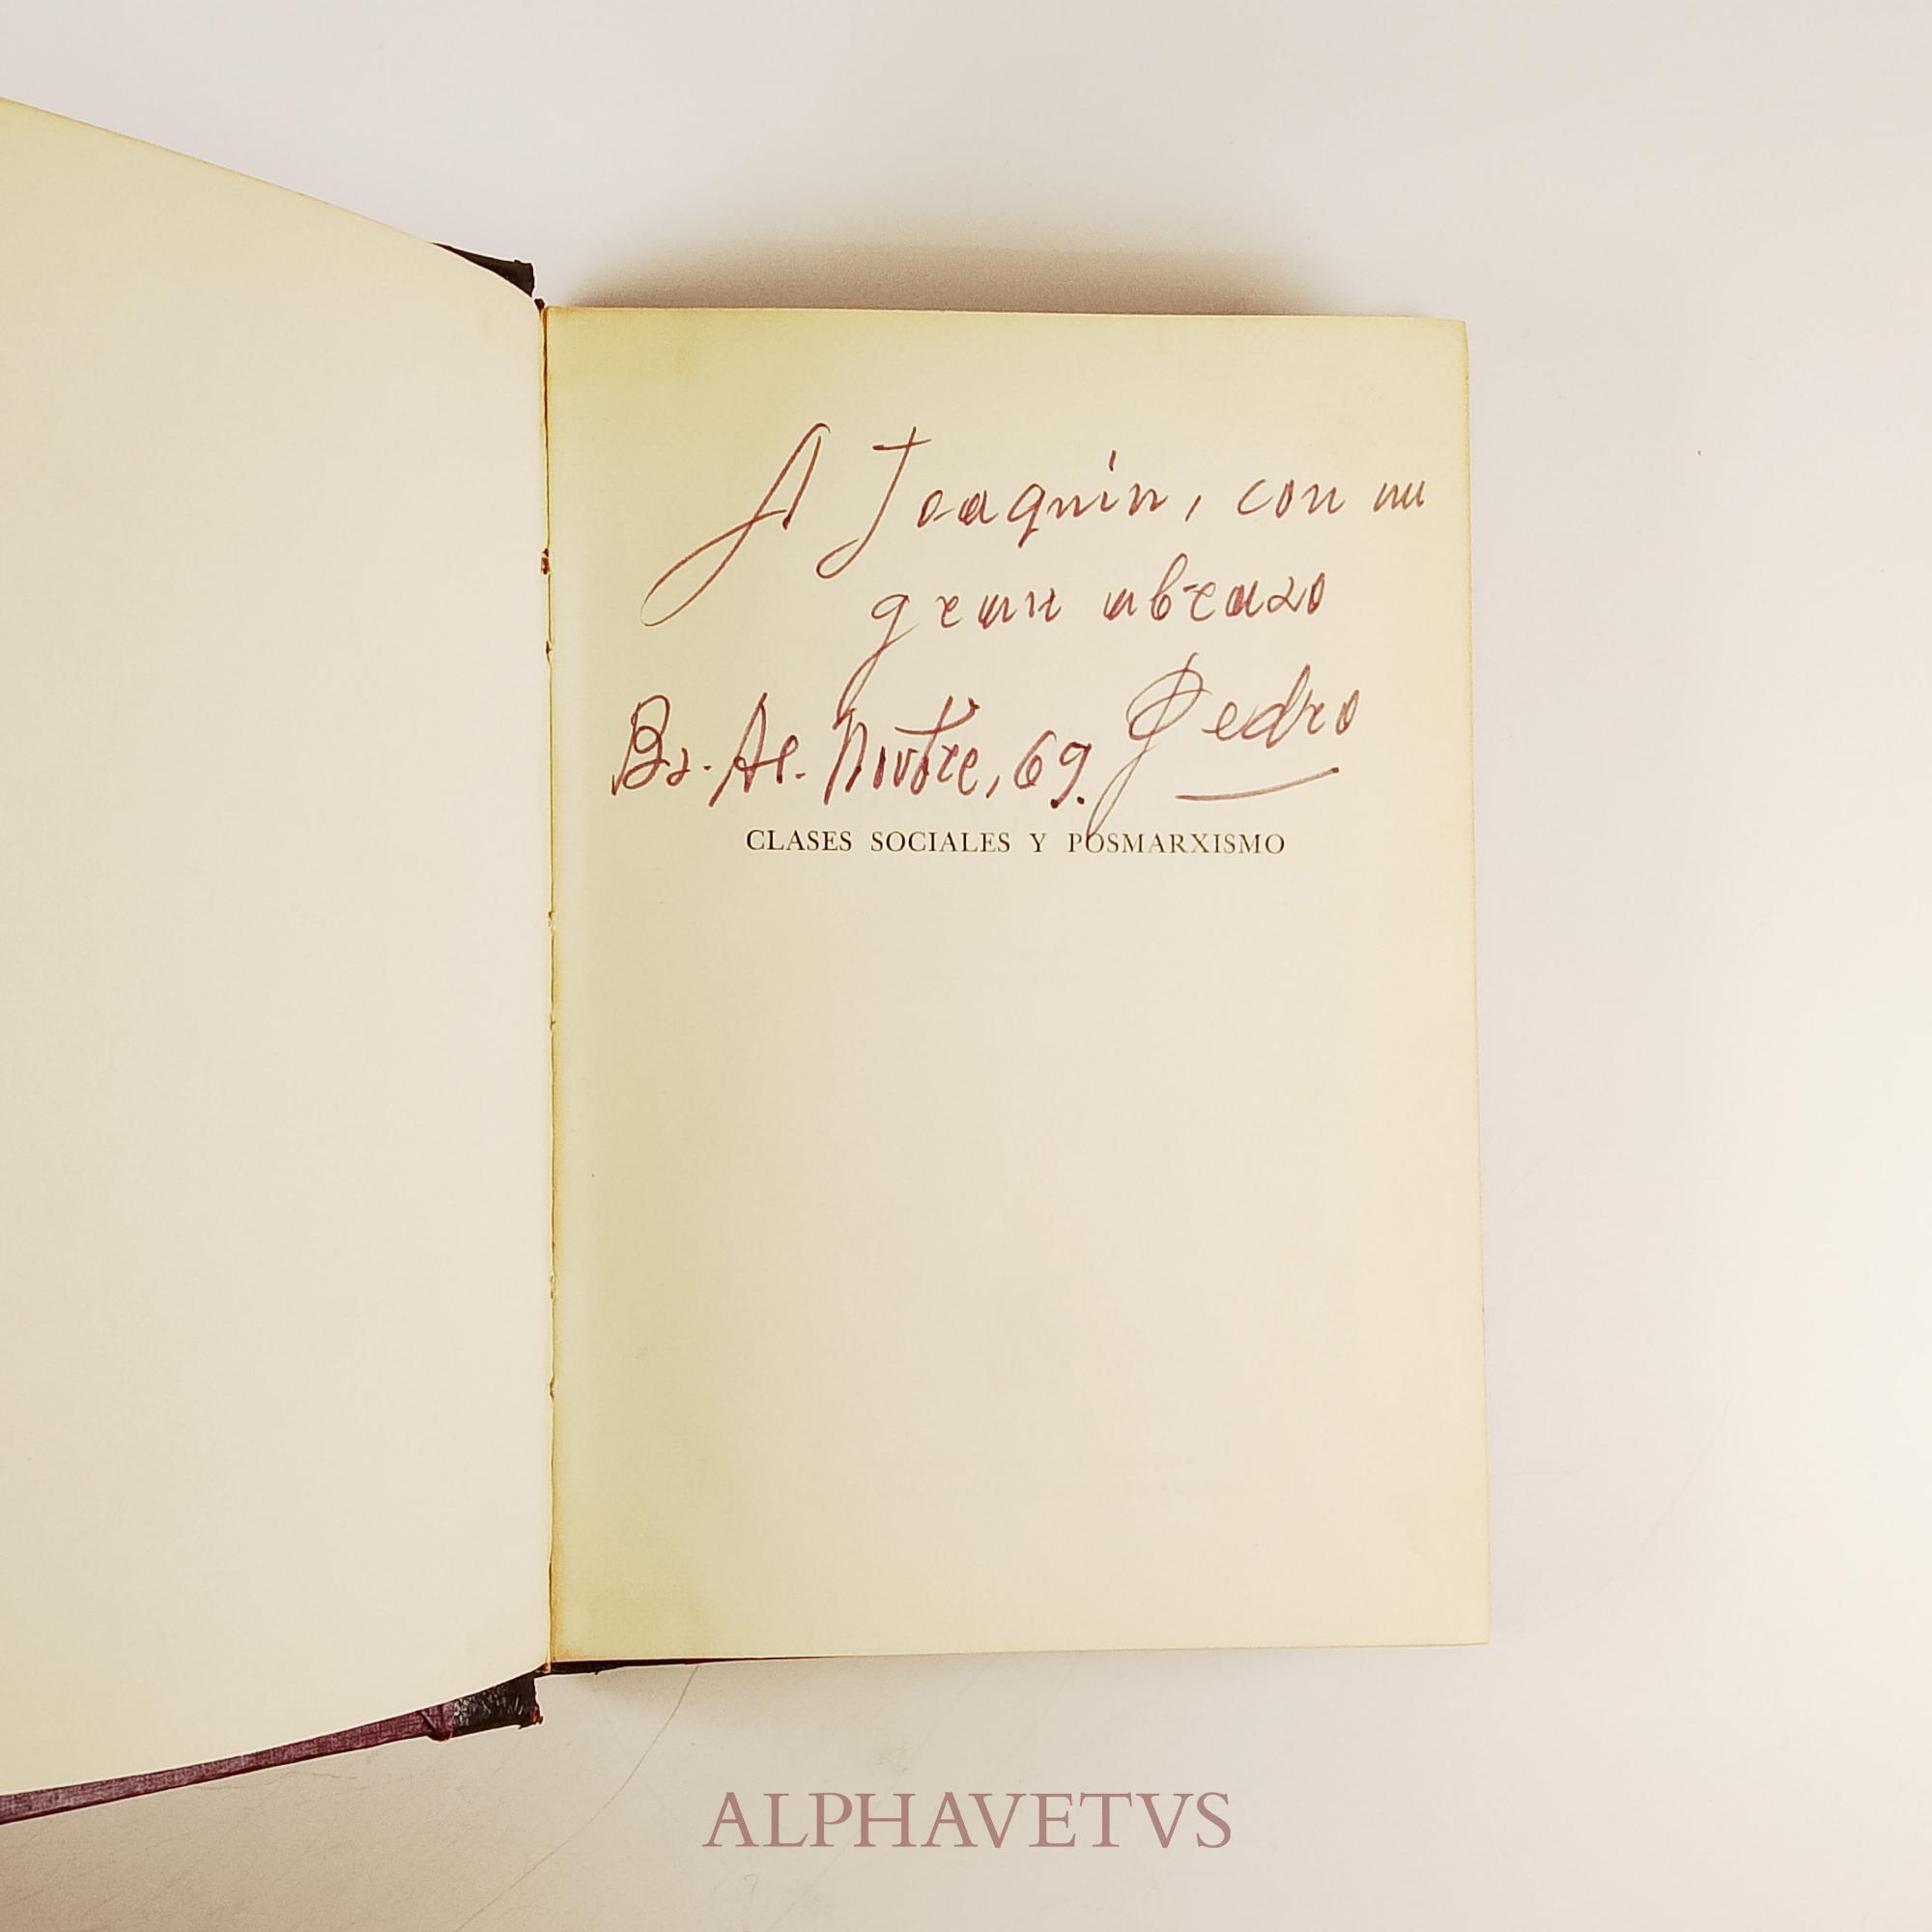 A Joaquin, con un
gran abrazo
Pedro
Bs. As. Novbre, 69.
CLASES SOCIALES Y POSMARXISMO
ALPHAVETVS